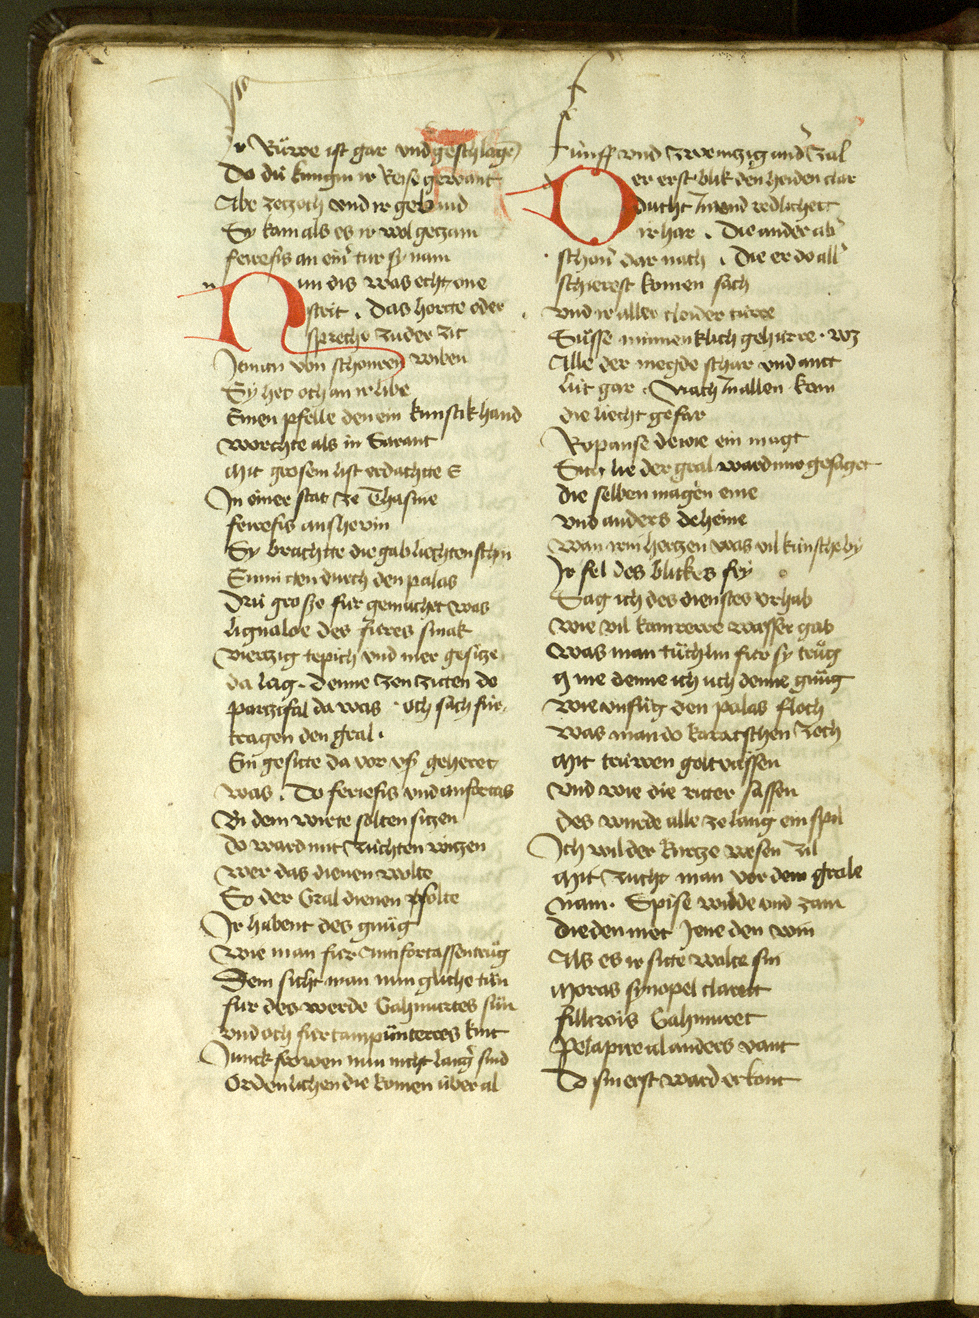 v Rüwe ist gar vnd geschlagen
Do dü kungin ir Reise gewant
Abe gezoch vnd ir gebend
Sy kam als es ir wol gezam
feirefis an einr tür sy nam
Nun dis was echt one
streit . Das horte oder
spreche zu der zit
Jeman von schonren wiben
Sy het och an ir libe
Einen pfelle den ein kunstik hand
worchte als in Sarant
Mit grosem list erdachtte E
In einer stat ze Thasme
feirefis anschevin
Sy brachtte die gab liechten schin
Enmitten durch den palas
Drü grosze für gemachet was
lignaloe des fieres smak
vierzig tepich vnd mer gesitze
da lag . denne zen ziten do
parzifal da was . och sach für
tragen den gral .
Ein gesitte da vor vsz geheret
was . Do feriefis vnd anfortas
Bi dem wirte solten sitzen
do ward mit zuchten witzen
wer das dienen wolte
So der Gral dienen solte
Ir habent des gnüg
wie man fur Anfortassen trüg
Dem sicht man nun gliche tün
fur des werde Gahmurtes sün
vnd och für tampünteires kint
Junckfrowen nun nicht lang sind
Ordenlichen die komen über al
fünff vnd zwenzig vnd zal
Der erst blik den heiden clar
ducht Inn vnd redlichett
ir har . Die ander abr
schonr dar nach . Die er do all
schierest komen sach
vnd ir aller cleider türre
Süsse minnenklich gehürre . wz
Alle der megde schar vnd antt
lüt gar . Nach In allen kam
die liecht gefar
Repanse deioie ein magt
Sich lie der gral ward mir gesaget
die selben magen eine
vnd anders deheine
wan irm hertzen was vil künsche by
Ir fel des blickes fry
Sag ich des dienstes vrhab
wie vil kamrere wasser gab
Was man tüchlin für sy trüg
Me denne ich üch denne gnüg
wie vnfüg den palas floch
was man do karatschen zoch
Mit trüwen golt vassen
vnd wie die ritter sassen
des wurde alle ze lang ein spil
Ich wil der kürtze wesen zil
Mit zucht man vor dem grale
nam . Spise wilde vnd zam
die den met Jene den win
Als es ir sitte wolte sin
Moras synopel claret
fillirois Gahmuret
Pelapire al anders vant
Do sin erst ward erkant